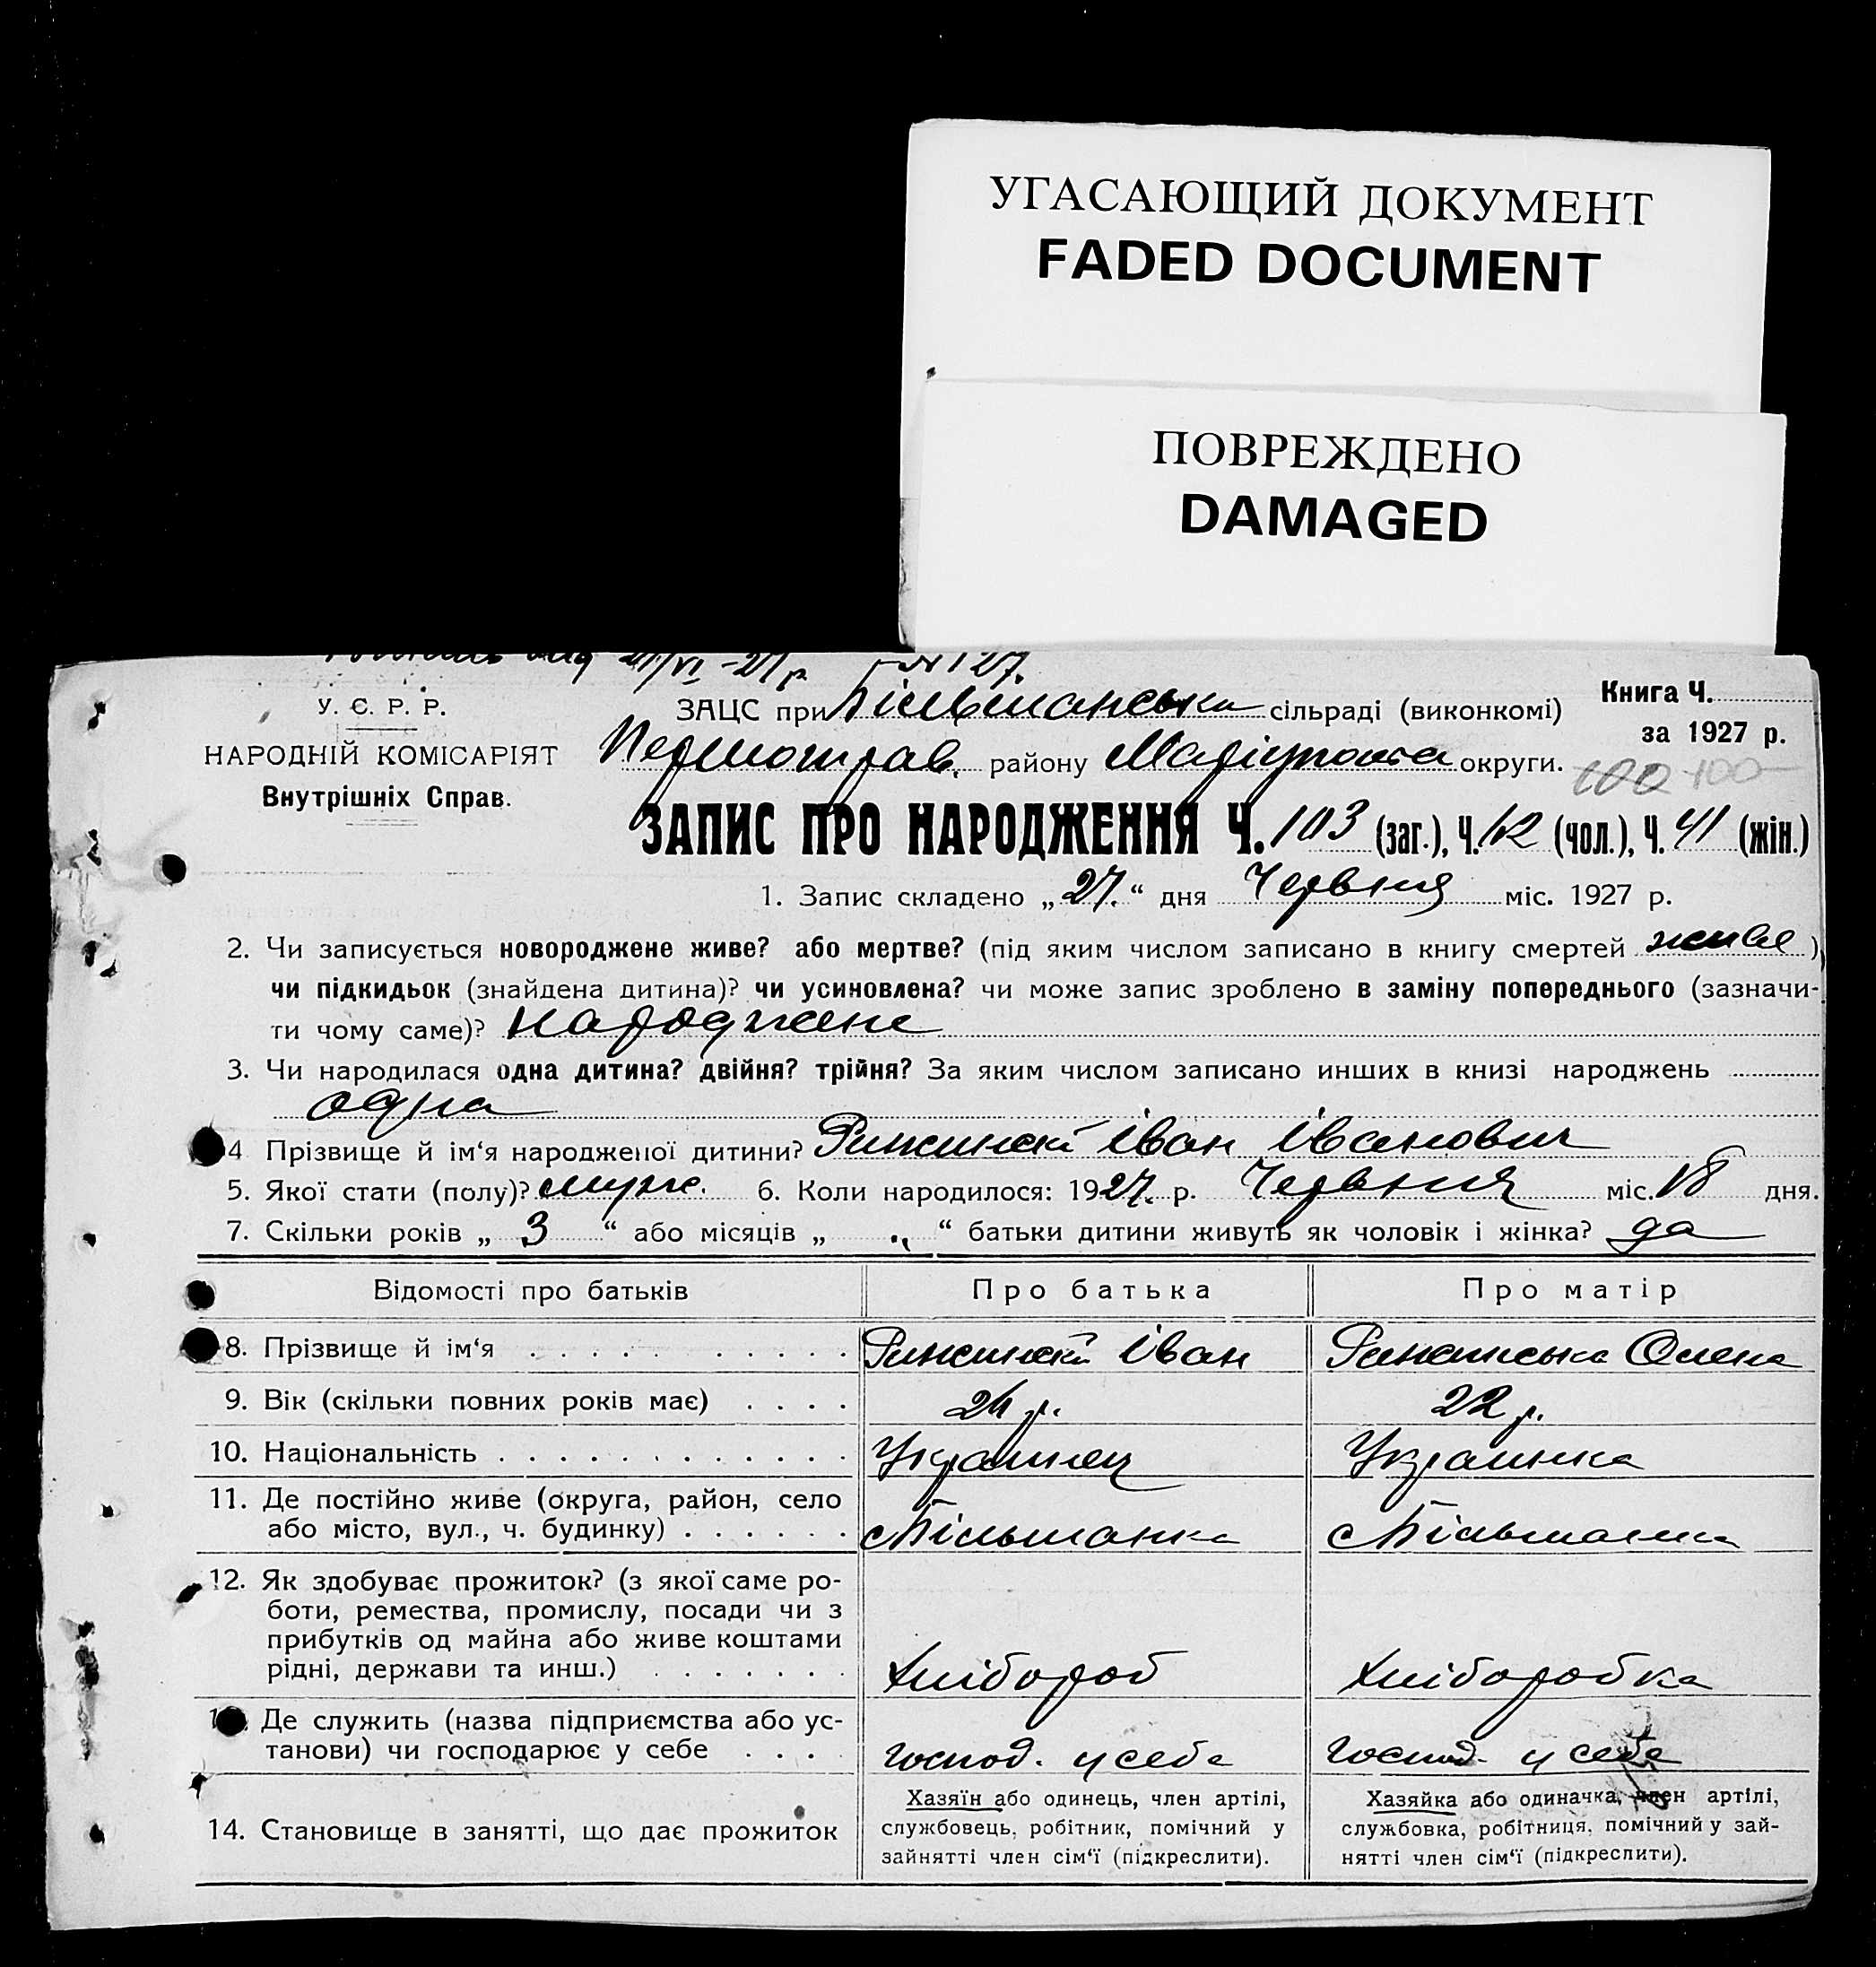 УГАСАЮЩИЙ ДОКУМЕНТ
FADED DOCUMENT
ПОВРЕЖДЕНО
DAMAGED
127.
У. С. Р. Р.
НАРОДНІЙ КОМІСАРІЯТ
Внутрішніх Справ.
ЗАЦС при сільраді (виконкомі)
Книга Ч.
за 1927 р.
району округи.
100 100
ЗАПИС ПРО НАРОДЖЕННЯ Ч. 103 (заг.), Ч. 62 (чол.), Ч. 41 (жін.)
1. Запис складено „27.“ дня Червня міс. 1927 р.
2. Чи записується новороджене живе? або мертве? (під яким числом записано в книгу смертей живе)
чи підкидьок (знайдена дитина)? чи усиновлена? чи може запис зроблено в заміну попереднього (зазначи-
ти чому саме)? народжене
3. Чи народилася одна дитина? двійня? трійня? За яким числом записано инших в книзі народжень
одна
4 Прізвище й ім‘я народженої дитини? Іван Іванович
5. Якої стати (полу)? муж. 6. Коли народилося: 1927. р. Червня міс. 18 дня.
7. Скільки років „ 3 “ або місяців „ „ “ батьки дитини живуть як чоловік і жінка? да
Відомості про батьків Про батька Про матір
8. Прізвище й ім‘я Іван Олена
9. Вік (скільки повних років має) 24 р. 22 р.
10. Національність Украинец Украинка
11. Де постійно живе (округа, район, село
або місто, вул., ч. будинку)
12. Як здобуває прожиток? (з якої саме ро-
боти, ремества, промислу, посади чи з
прибутків од майна або живе коштами
рідні, держави та инш.) Хлібороб Хліборобка
Де служить (назва підприємства або ус-
танови) чи господарює у себе Господ. у себе Господ. у себе
14. Становище в занятті, що дає прожиток
Хазяїн або одинець, член артілі,
службовець, робітник, помічний у
зайнятті член сім‘ї (підкреслити).
Хазяйка або одиначка, член артілі,
службовка, робітниця, помічний у зай-
нятті член сім‘ї (підкреслити).